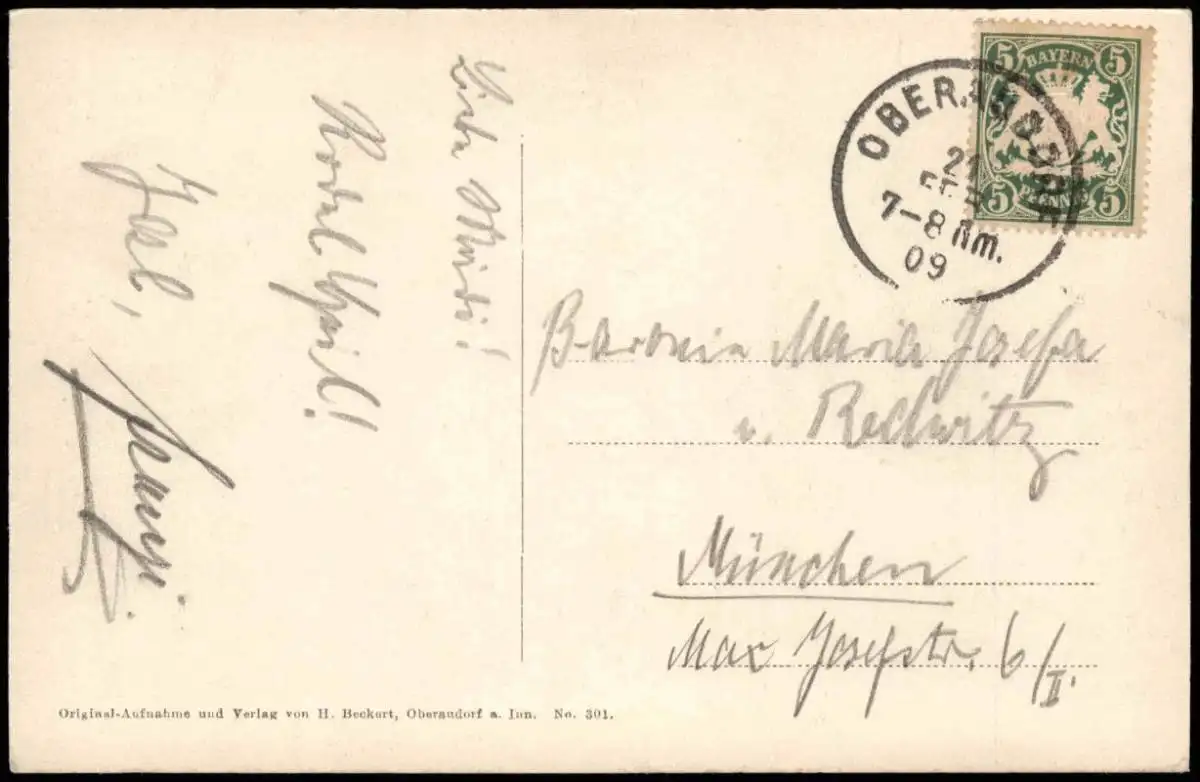 Liebe Mirdi!
Rodel Heil!
BAYERN
5 5
5 PFENNIG 5
OBERAUDORF
21
FEB
7-8 Nm.
09
Baronin Maria Josefa
v. Redwitz
München
Max Josefstr. 6/II.
Original-Aufnahme und Verlag von H. Beckert, Oberaudorf a. Inn. No. 301.